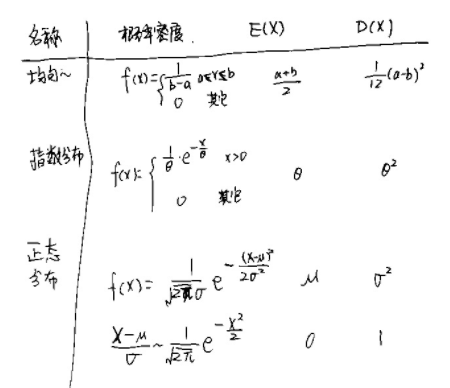 名称 概率密度 E(X) D(X)
均匀~ f(x)={ 1/(b-a) a≤x≤b a+b/2 1/12(a-b)²
0 其它
指数分布 f(x)={ 1/θ·e^(-x/θ) x>0 θ θ²
0 其它
正态
分布 f(x)= 1/(√2π σ) e^(-(x-μ)²/2σ²) μ σ²
X-μ/σ ~ 1/√2π e^(-x²/2) 0 1